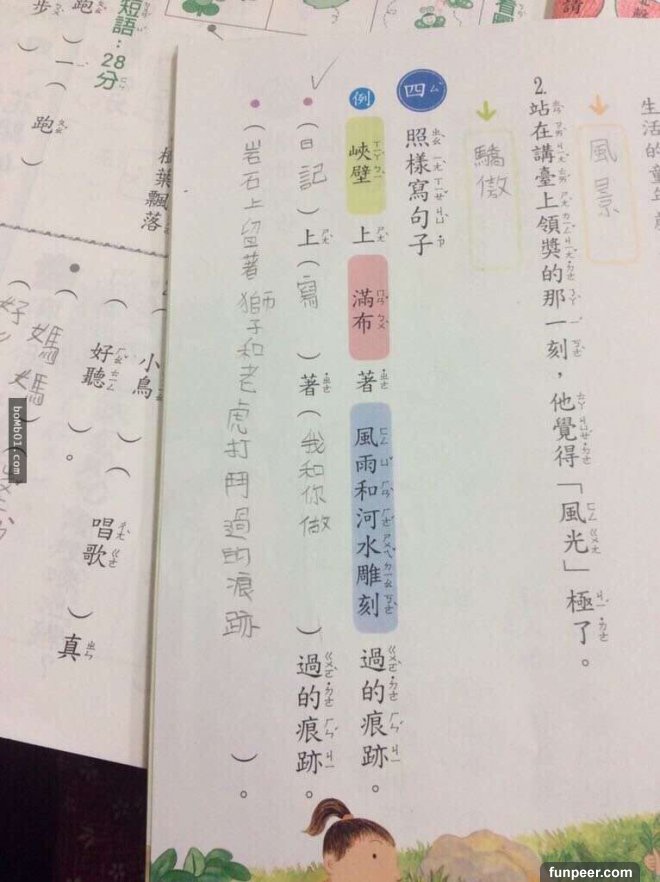 生活的童年
風景
2.站在講臺上領獎的那一刻，他覺得「風光」極了。
驕傲
四 照樣寫句子
例 峽壁上滿布著風雨和河水雕刻過的痕跡。
（日記）上（寫）著（我和你做）過的痕跡。
（岩石上留著獅子和老虎打鬥過的痕跡）。
短語：28分
跑
步
（跑）
樹葉飄落
小鳥（唱歌）真
（好聽）。
媽媽
好
bomb01.com
funpeer.com